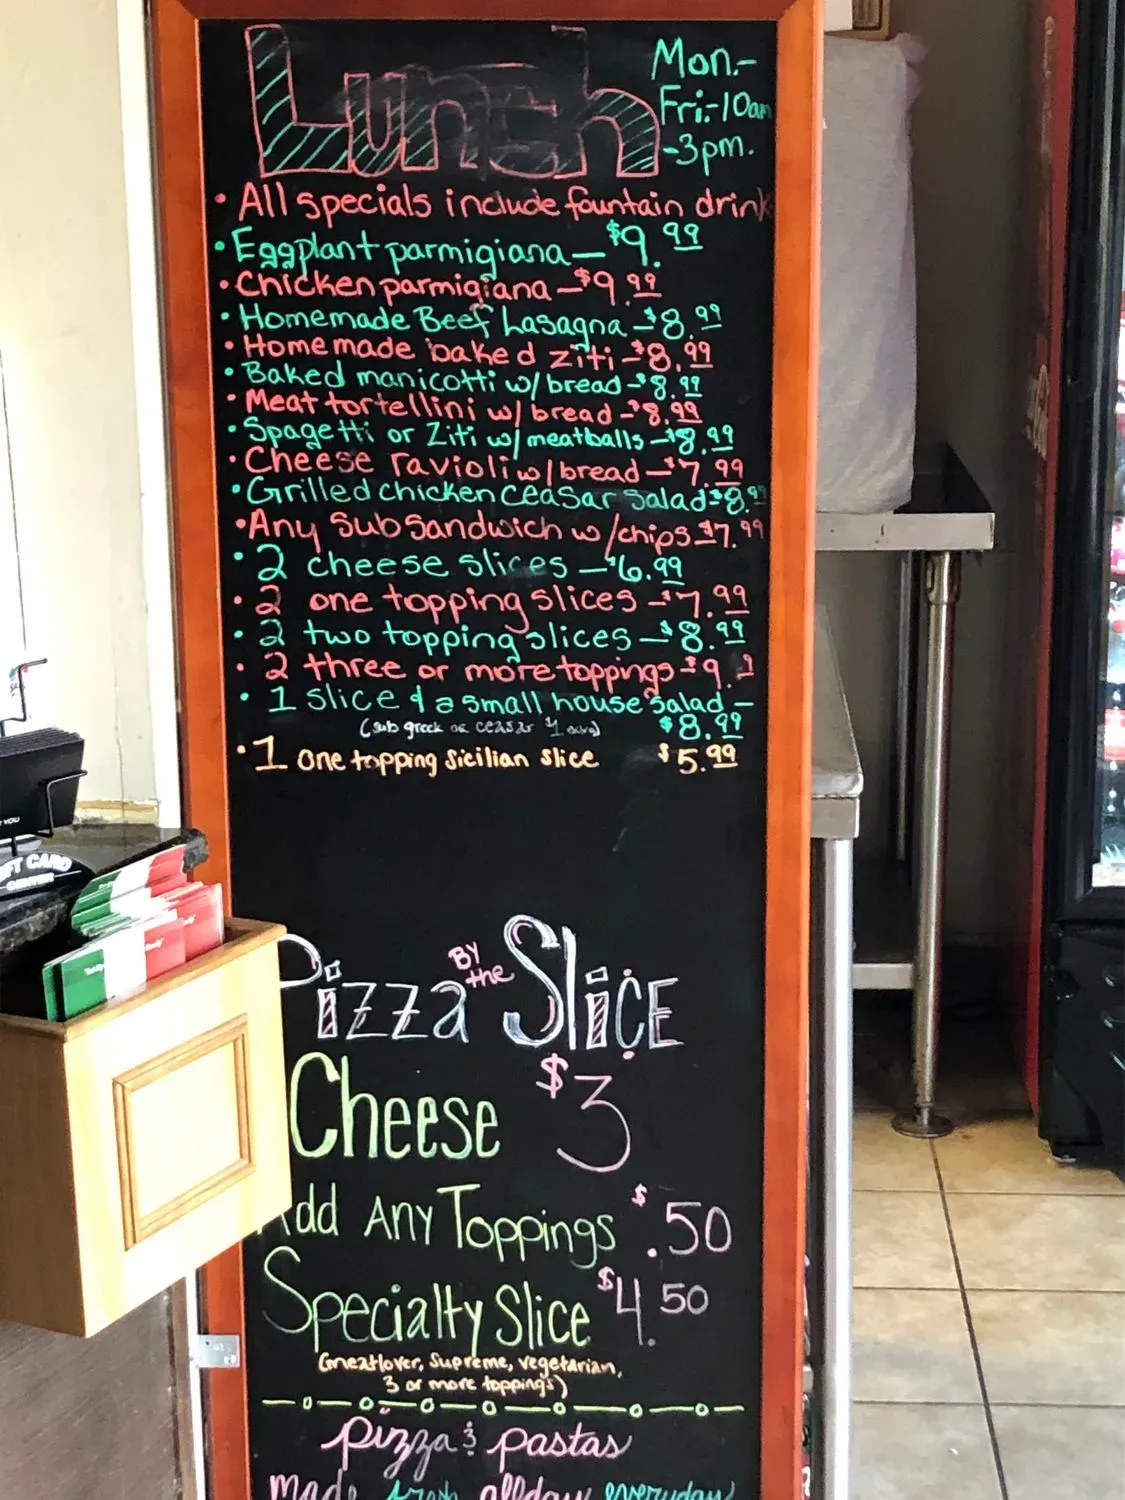 Lunch
Mon.-
Fri.-10am
-3pm.
• All specials include fountain drink
• Eggplant parmigiana — $9.99
• Chicken parmigiana — $9.99
• Homemade Beef Lasagna - $8.99
• Homemade baked ziti - $8.99
• Baked manicotti w/ bread - $8.99
• Meat tortellini w/ bread - $8.99
• Spagetti or Ziti w/ meatballs - $8.99
• Cheese ravioli w/ bread - $7.99
• Grilled chicken ceasar salad - $8.99
• Any sub sandwich w/chips - $7.99
• 2 cheese slices — $6.99
• 2 one topping slices - $7.99
• 2 two topping slices — $8.99
• 2 three or more toppings - $9.
• 1 slice & a small house salad -
(sub greek or ceasar $1 extra) $8.99
• 1 One topping Sicilian Slice $5.99
Pizza By the Slice
Cheese $3
Add Any Toppings $.50
Specialty Slice $4.50
(meatlover, Supreme, vegetarian,
3 or more toppings)
pizza & pastas
made fresh allday everyday
YOU
GIFT CARD